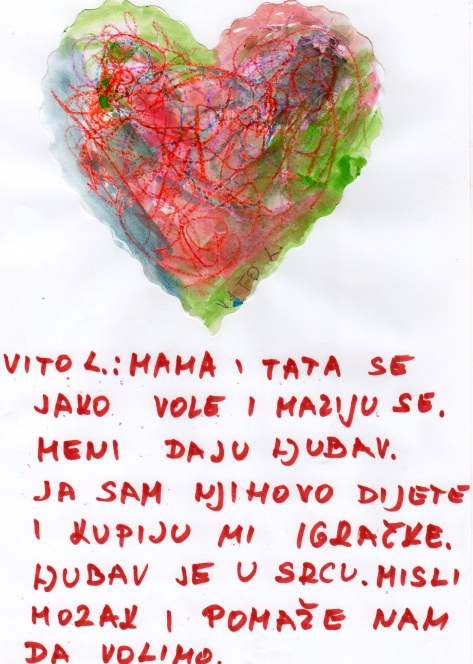 VITO L.
VITO L.: MAMA I TATA SE
JAKO VOLE I MAZIJU SE.
MENI DAJU LJUBAV.
JA SAM NJIHOVO DIJETE
I KUPIJU MI IGRAČKE.
LJUBAV JE U SRCU. MISLI
MOZAK I POMAŽE NAM
DA VOLIMO.